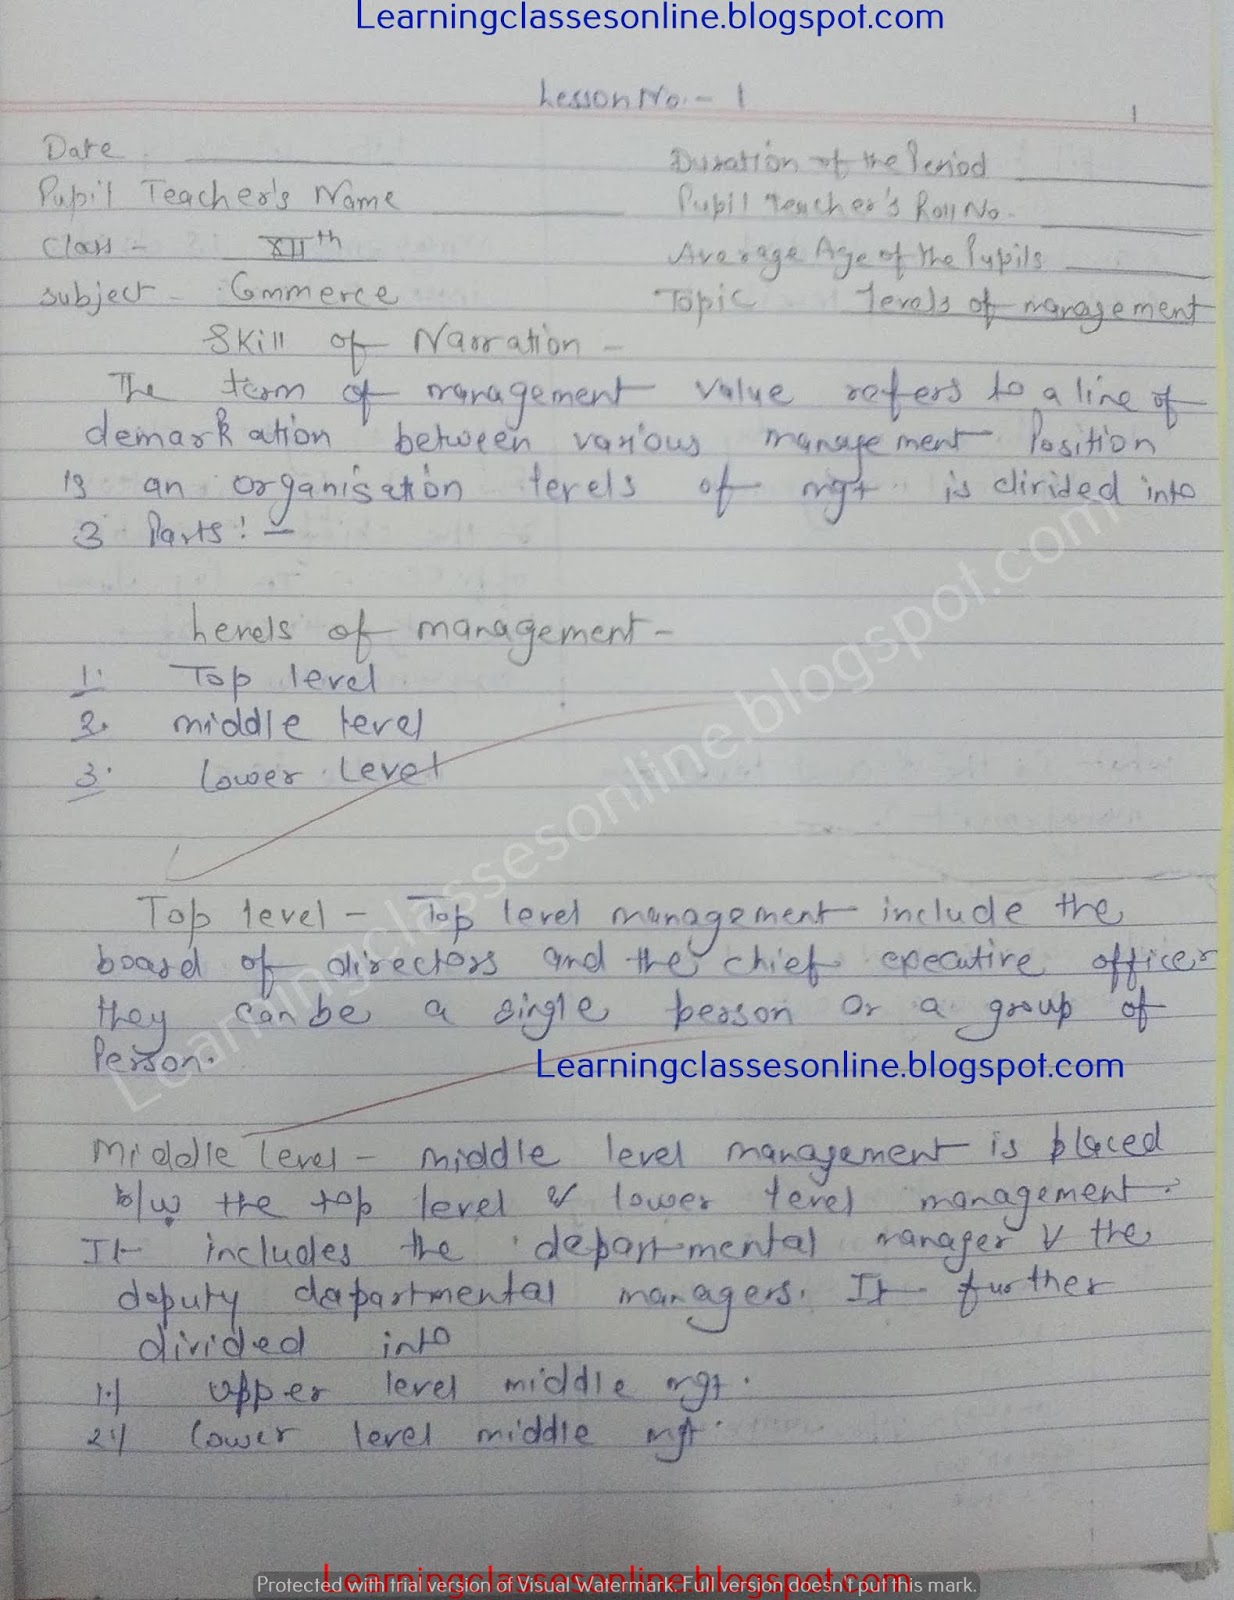 Learningclassesonline.blogspot.com
Lesson No.- 1
1
Date
Duration of the Period
Pupil Teacher's Name
Pupil Teacher's Roll No.
Class - XIIth
Average Age of the Pupils
Subject - Commerce
Topic Levels of management
Skill of Narration -
The term of management value refers to a line of
demarkation between various management Position
is an organisation levels of mgt. is divided into
3 Parts! -
Levels of management -
1. Top level
2. middle level
3. Lower Level
Top level - Top level management include the
board of directors and the chief executive officer
they can be a single person or a group of
Person.
Learningclassesonline.blogspot.com
Learningclassesonline.blogspot.com
Middle Level - middle level management is placed
b/w the top level & lower level management.
It includes the departmental manager & the
deputy departmental managers. It further
divided into
1.) Upper level middle mgt.
2.) Lower level middle mgt.
Learningclassesonline.blogspot.com
Protected with trial version of Visual Watermark. Full version doesn't put this mark.